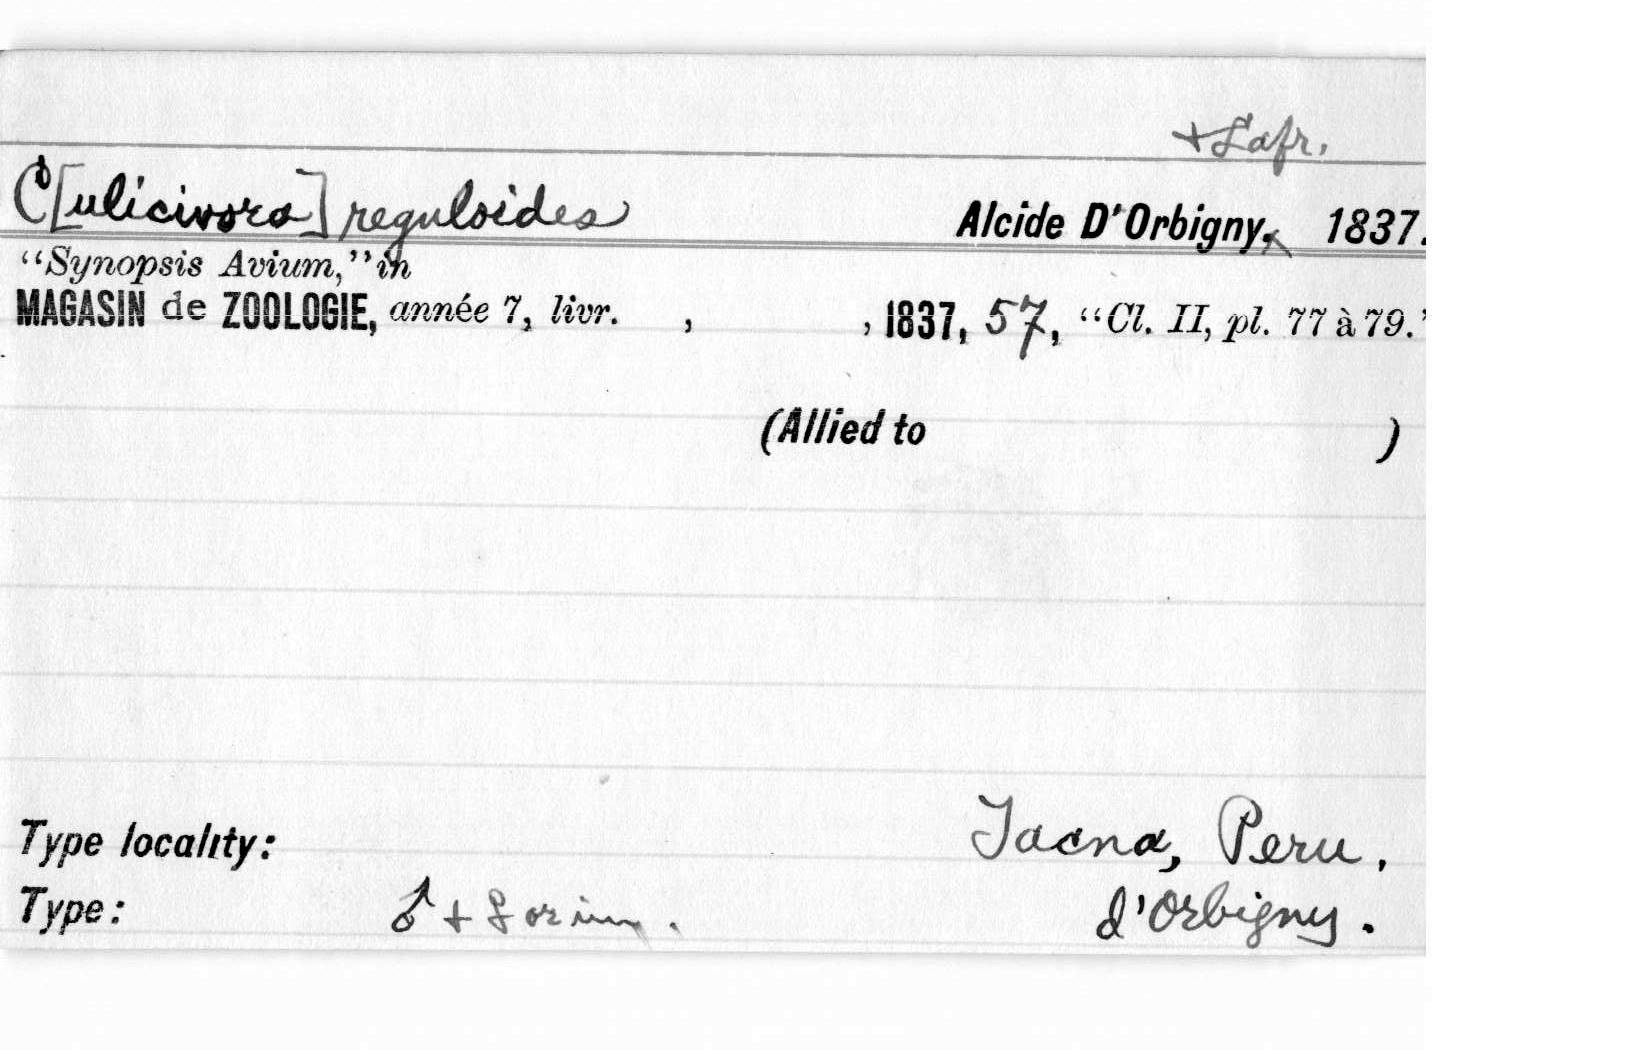 + Lafr.
C[ulicivora] reguloides Alcide D'Orbigny, 1837.
“Synopsis Avium,” in
MAGASIN de ZOOLOGIE, année 7, livr. , , 1837, 57, “Cl. II, pl. 77 à 79.”
(Allied to )
Type locality: Tacna, Peru.
Type: ♂ + d'Orbigny.